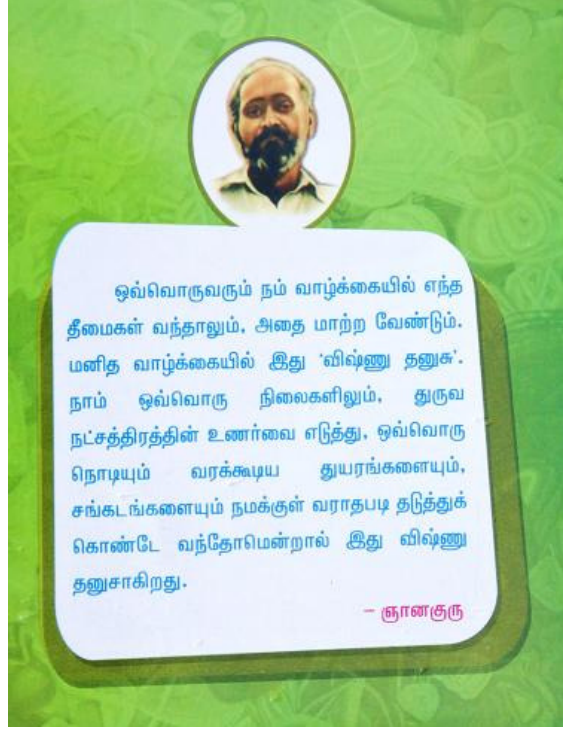 ஒவ்வொருவரும் நம் வாழ்க்கையில் எந்த
தீமைகள் வந்தாலும், அதை மாற்ற வேண்டும்.
மனித வாழ்க்கையில் இது ‘விஷ்ணு தனுசு’.
நாம் ஒவ்வொரு நிலைகளிலும், துருவ
நட்சத்திரத்தின் உணர்வை எடுத்து, ஒவ்வொரு
நொடியும் வரக்கூடிய துயரங்களையும்,
சங்கடங்களையும் நமக்குள் வராதபடி தடுத்துக்
கொண்டே வந்தோமென்றால் இது விஷ்ணு
தனுசாகிறது.
– ஞானகுரு